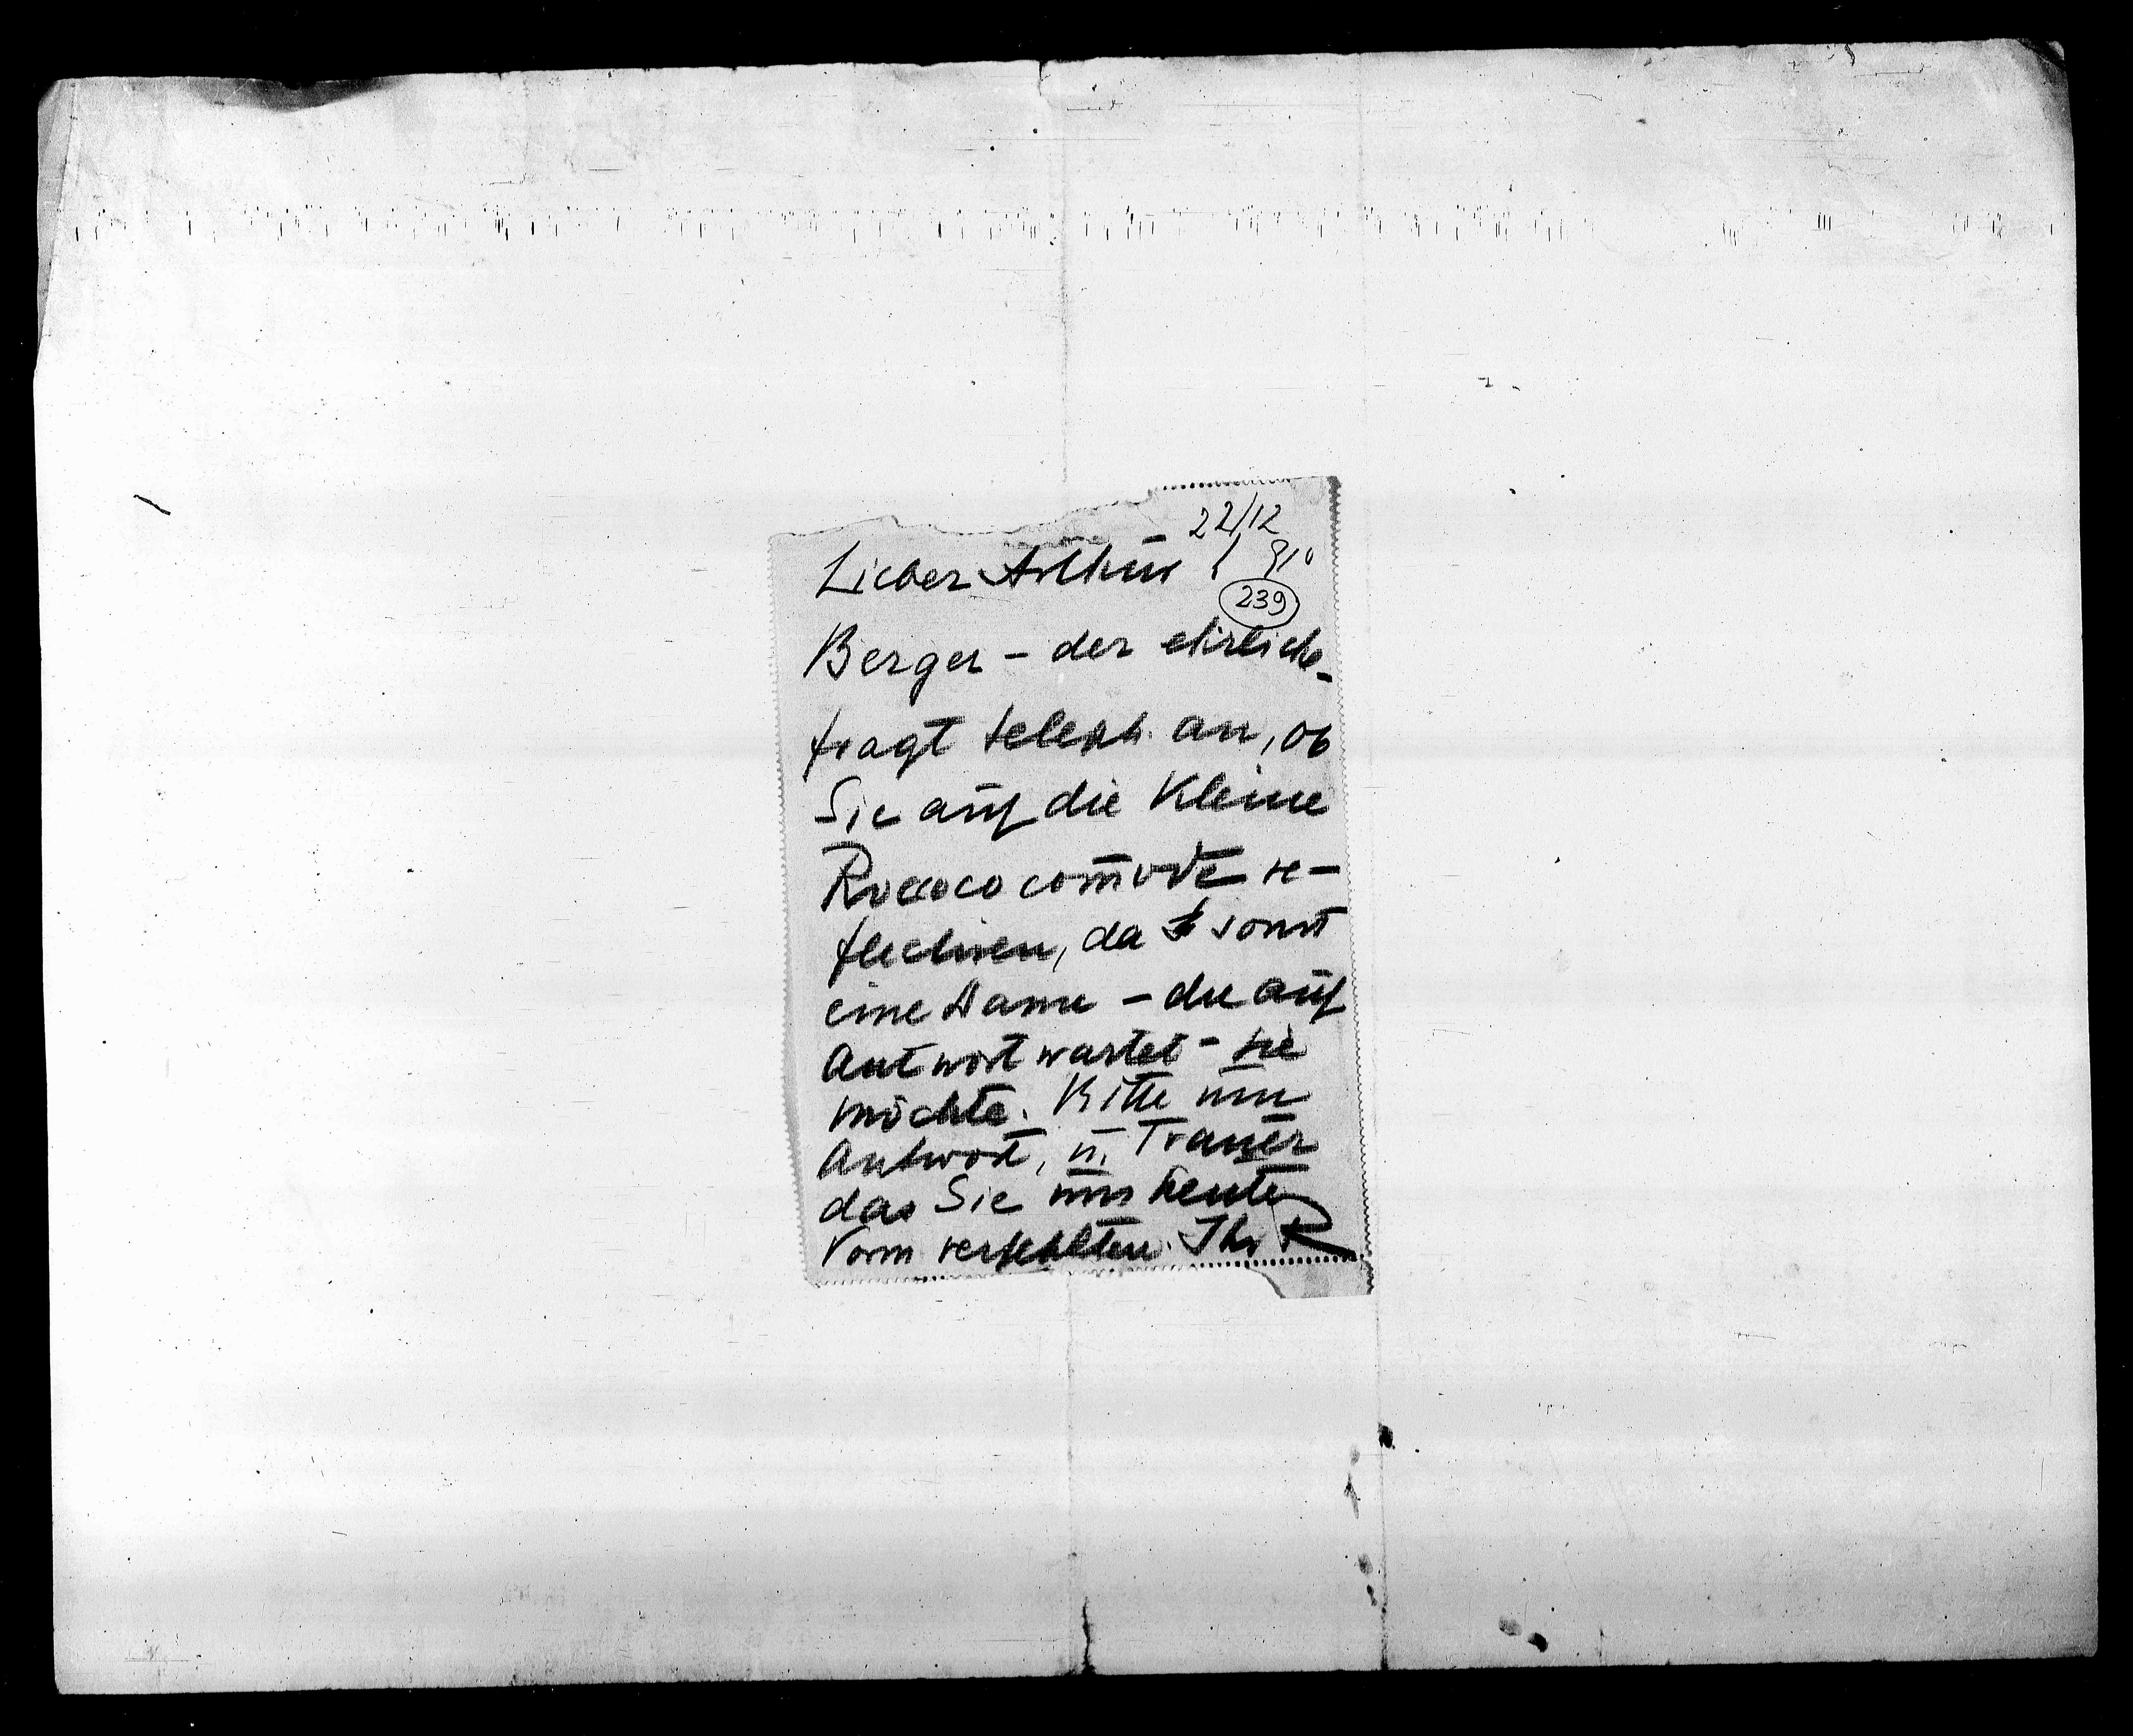 22/12
Lieber Arthur! 910
239
Berger – der ehrliche-
fragt teleph. an, ob
Sie auf die kleine
Roccoco com̄ode re-
flectiren, da sonst
eine Dame – die auf
Antwort wartet – sie
möchte. Bitte um
Antwort, u. Trauer
das Sie uns heute
Vorm verfehlten. Ihr R